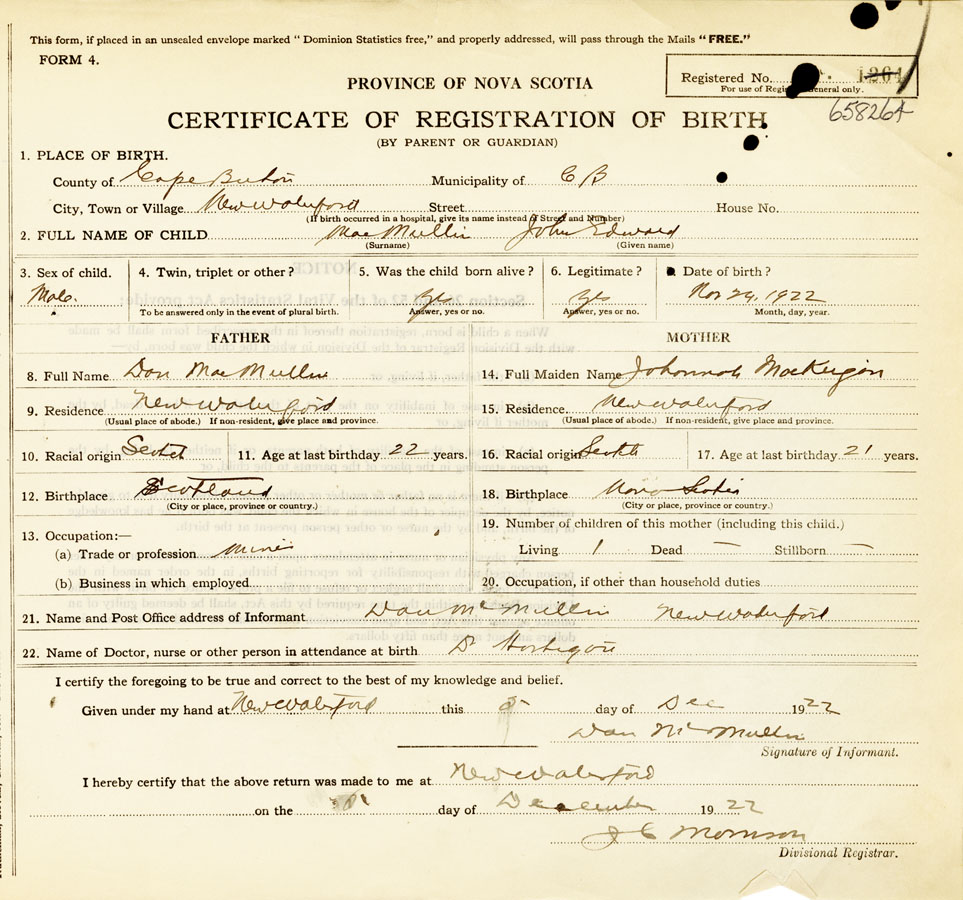 This form, if placed in an unsealed envelope marked “ Dominion Statistics free,” and properly addressed, will pass through the Mails “ FREE.”
FORM 4.
PROVINCE OF NOVA SCOTIA
Registered No. 1264
For use of Registrar General only.
658264
CERTIFICATE OF REGISTRATION OF BIRTH
(BY PARENT OR GUARDIAN)
1. PLACE OF BIRTH.
County of Cape Breton Municipality of C B
City, Town or Village New Waterford Street House No.
(If birth occurred in a hospital, give its name instead of Street and Number)
2. FULL NAME OF CHILD MacMullin John Edward
(Surname) (Given name)
3. Sex of child. 4. Twin, triplet or other? 5. Was the child born alive? 6. Legitimate? Date of birth?
Male. Yes Yes Nov 29, 1922
To be answered only in the event of plural birth. Answer, yes or no. Answer, yes or no. Month, day, year.
FATHER MOTHER
8. Full Name Dan MacMullin 14. Full Maiden Name Johannah MacKeigan
9. Residence New Waterford 15. Residence. New Waterford
(Usual place of abode.) If non-resident, give place and province. (Usual place of abode.) If non-resident, give place and province.
10. Racial origin Scotch 11. Age at last birthday 22 years. 16. Racial origin Scotch 17. Age at last birthday 21 years.
12. Birthplace Scotland 18. Birthplace Nova Scotia
(City or place, province or country.) (City or place, province or country.)
19. Number of children of this mother (including this child.)
13. Occupation:—
(a) Trade or profession Miner Living 1 Dead — Stillborn —
(b) Business in which employed 20. Occupation, if other than household duties
21. Name and Post Office address of Informant Dan McMullin New Waterford
22. Name of Doctor, nurse or other person in attendance at birth Dr
I certify the foregoing to be true and correct to the best of my knowledge and belief.
Given under my hand at New Waterford this 5 day of Dec 1922
Dan McMullin
Signature of Informant.
I hereby certify that the above return was made to me at New Waterford
on the day of December 1922
J C Morrison
Divisional Registrar.